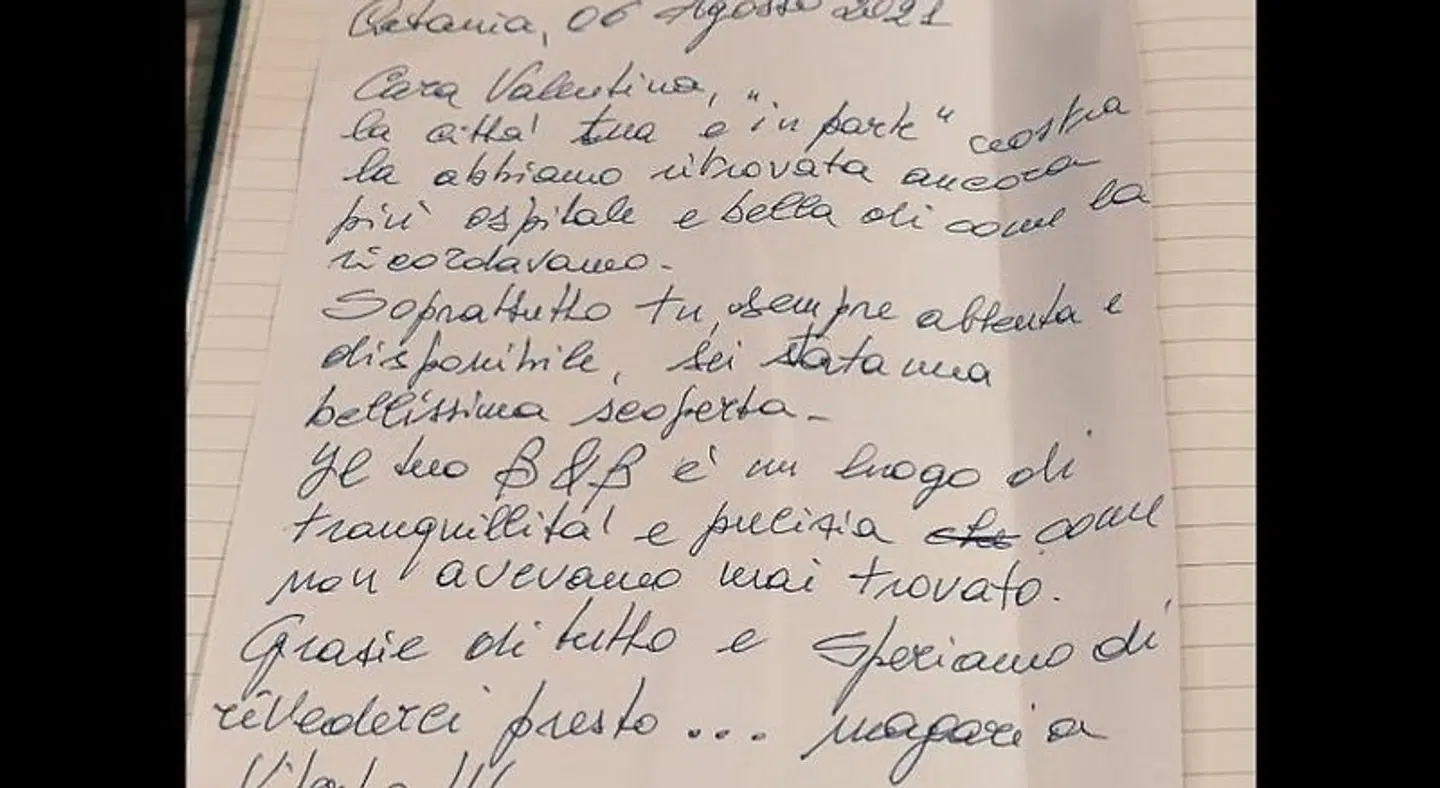 Catania, 06 Agosto 2021
Cara Valentina,
la città tua e "in parte" nostra
la abbiamo ritrovata ancora
più ospitale e bella di come la
ricordavamo.
Soprattutto tu, sempre attenta e
disponibile, sei stata una
bellissima scoperta.
Il tuo B&B è un luogo di
tranquillità e pulizia che come
non avevamo mai trovato.
Grazie di tutto e speriamo di
rivederci presto... magari a